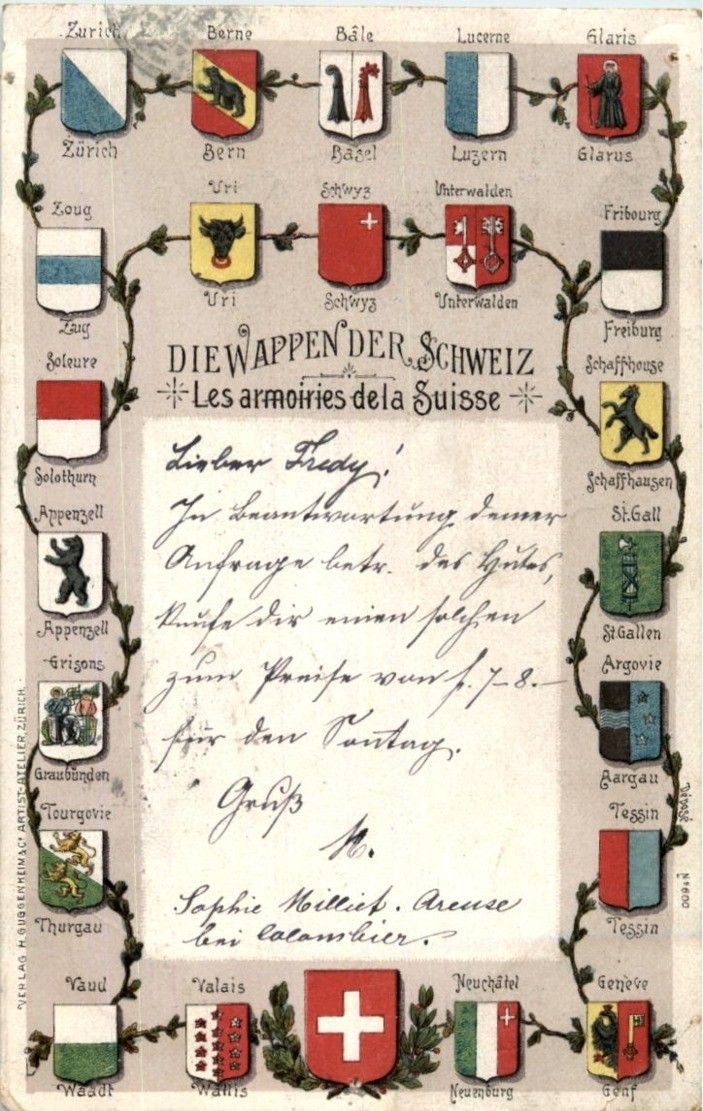 Zurich Berne Bâle Lucerne Glaris
Zürich Bern Basel Luzern Glarus
Zoug Uri Schwyz Unterwalden Fribourg
Zug Uri Schwyz Unterwalden Freiburg
DIE WAPPEN DER SCHWEIZ
Les armoiries de la Suisse
Soleure Schaffhouse
Solothurn Schaffhausen
Appenzell St. Gall
Appenzell St Gallen
Grisons Argovie
Graubünden Aargau
Tourgovie Tessin
Thurgau Tessin
Lieber Fredy!
In Beantwortung deiner
Anfrage betr. des Hutes,
kaufe dir einen solchen
zum Preise von f. 7-8.–
für den Sontag.
Gruß
M.
Sophie Milliet. Areuse
bei Colombier.
Vaud Valais Neuchâtel Genève
Waadt Wallis Neuenburg Genf
VERLAG H. GUGGENHEIM & Co ARTIST-ATELIER, ZÜRICH.
Déposé